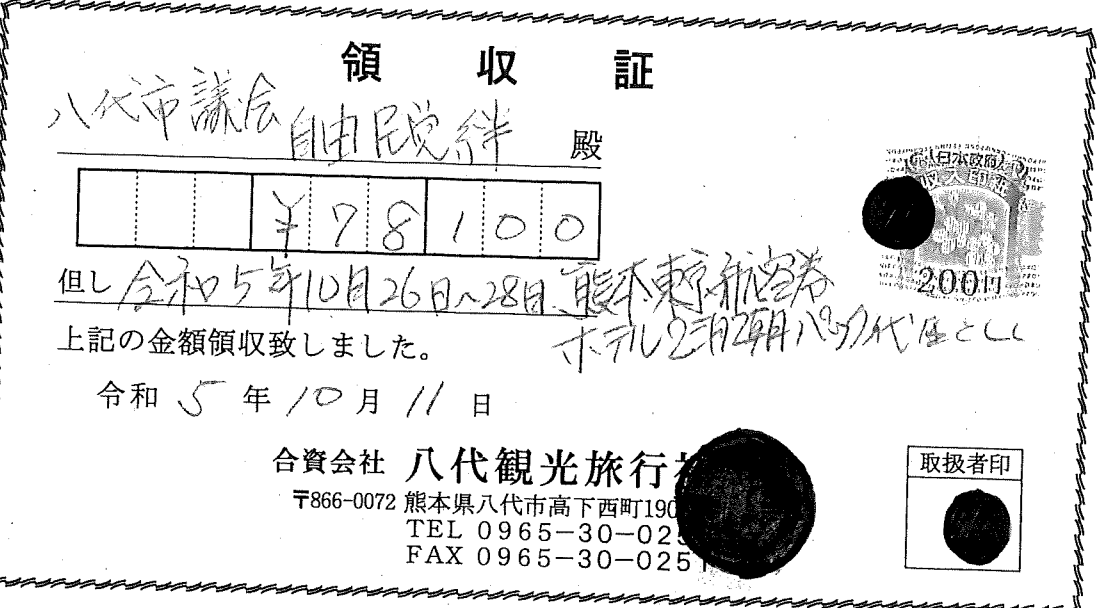 領収証
八代市議会 自由民党絆 殿
¥78100
但し 令和5年10月26日〜28日 熊本東京航空券
ホテル2泊2朝パック代
上記の金額領収致しました。
令和 5 年 10 月 11 日
日本政府
収入印紙
200円
合資会社 八代観光旅行
〒866-0072 熊本県八代市高下西町190
TEL 0965-30-02
FAX 0965-30-025
取扱者印